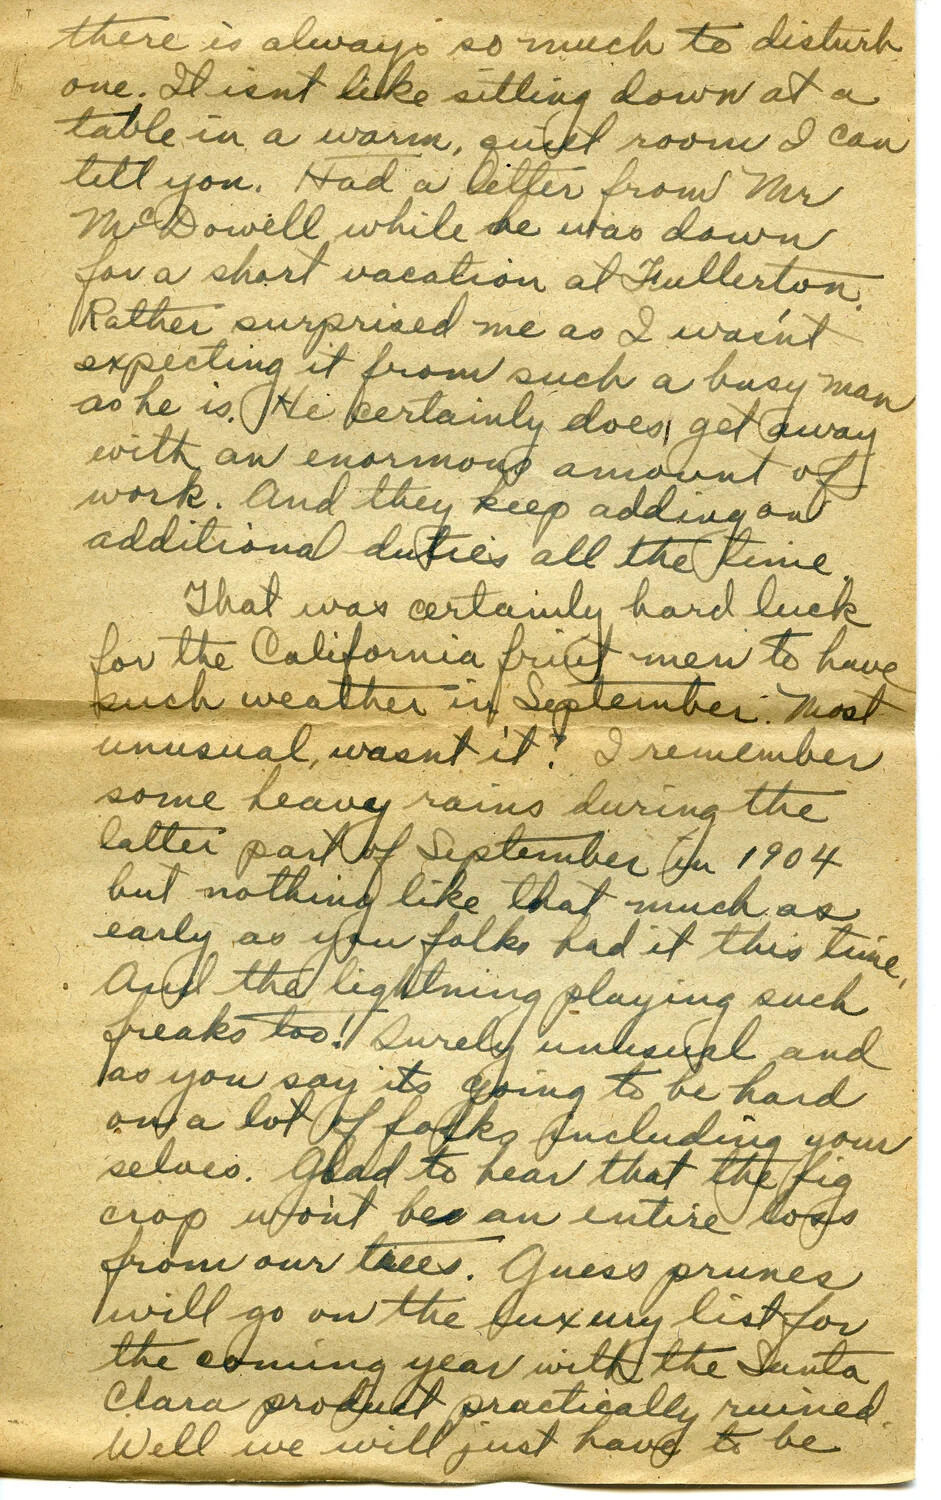 there is always so much to disturb
one. It isnt like sitting down at a
table in a warm, quiet room I can
tell you. Had a letter from Mr
McDowell while he was down
for a short vacation at Fullerton.
Rather surprised me as I wasn't
expecting it from such a busy man
as he is. He certainly does get away
with an enormous amount of
work. And they keep adding on
additional duties all the time.
That was certainly hard luck
for the California fruit men to have
such weather in September. Most
unusual, wasnt it? I remember
some heavy rains during the
latter part of September in 1904
but nothing like that much as
early as you folks had it this time,
And the lightning playing such
freaks too! Surely unusual and
as you say its going to be hard
on a lot of folks including your
selves. Glad to hear that the fig
crop won't be an entire loss
from our trees. Guess prunes
will go on the luxury list for
the coming year with the Santa
Clara product practically ruined.
Well we will just have to be